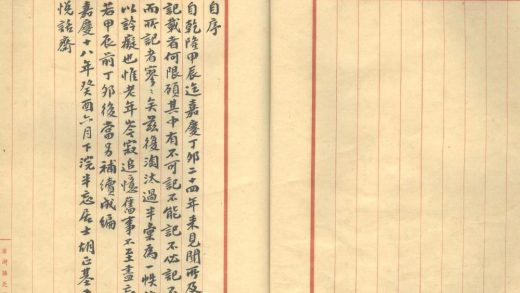 自序
自乾隆甲辰迄嘉慶丁卯二十四年來見聞所及
記載者何限顧其中有不可記不能記不必記不
而所記者寥〻矣茲後淘汰過半彙為一帙
以詅癡也惟老年岑寂追憶舊事不至盡忘
若甲辰前丁卯後當另補續成編
嘉慶十八年癸酉六月下浣半忘居士胡正基
悅詁齋